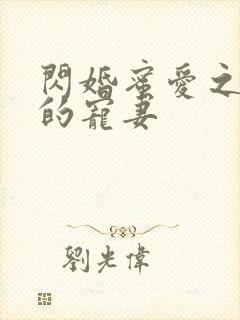 閃婚蜜愛之
的寵妻
劉光偉